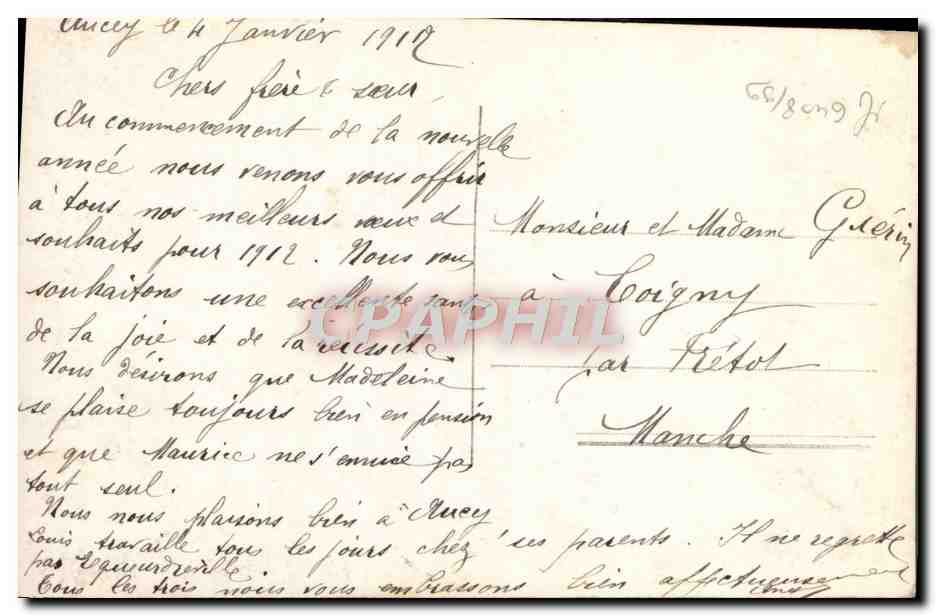 Aucey le 4 Janvier 1912
Chers frère & sœur,
Au commencement de la nouvelle
année nous venons vous offrir
à tous nos meilleurs vœux et
souhaits pour 1912. Nous vous
souhaitons une excellente santé
de la joie et de la réussite.
Nous désirons que Madeleine
se plaise toujours bien en pension
et que Maurice ne s'ennuie pas
tout seul.
Nous nous plaisons bien à Aucey
Louis travaille tous les jours chez ses parents. Il ne regrette
pas Equeurdreville
Tous les trois nous vous embrassons bien affectueusement
Monsieur et Madame Guérin
à Coigny
par Prétot
Manche
CPAPHIL